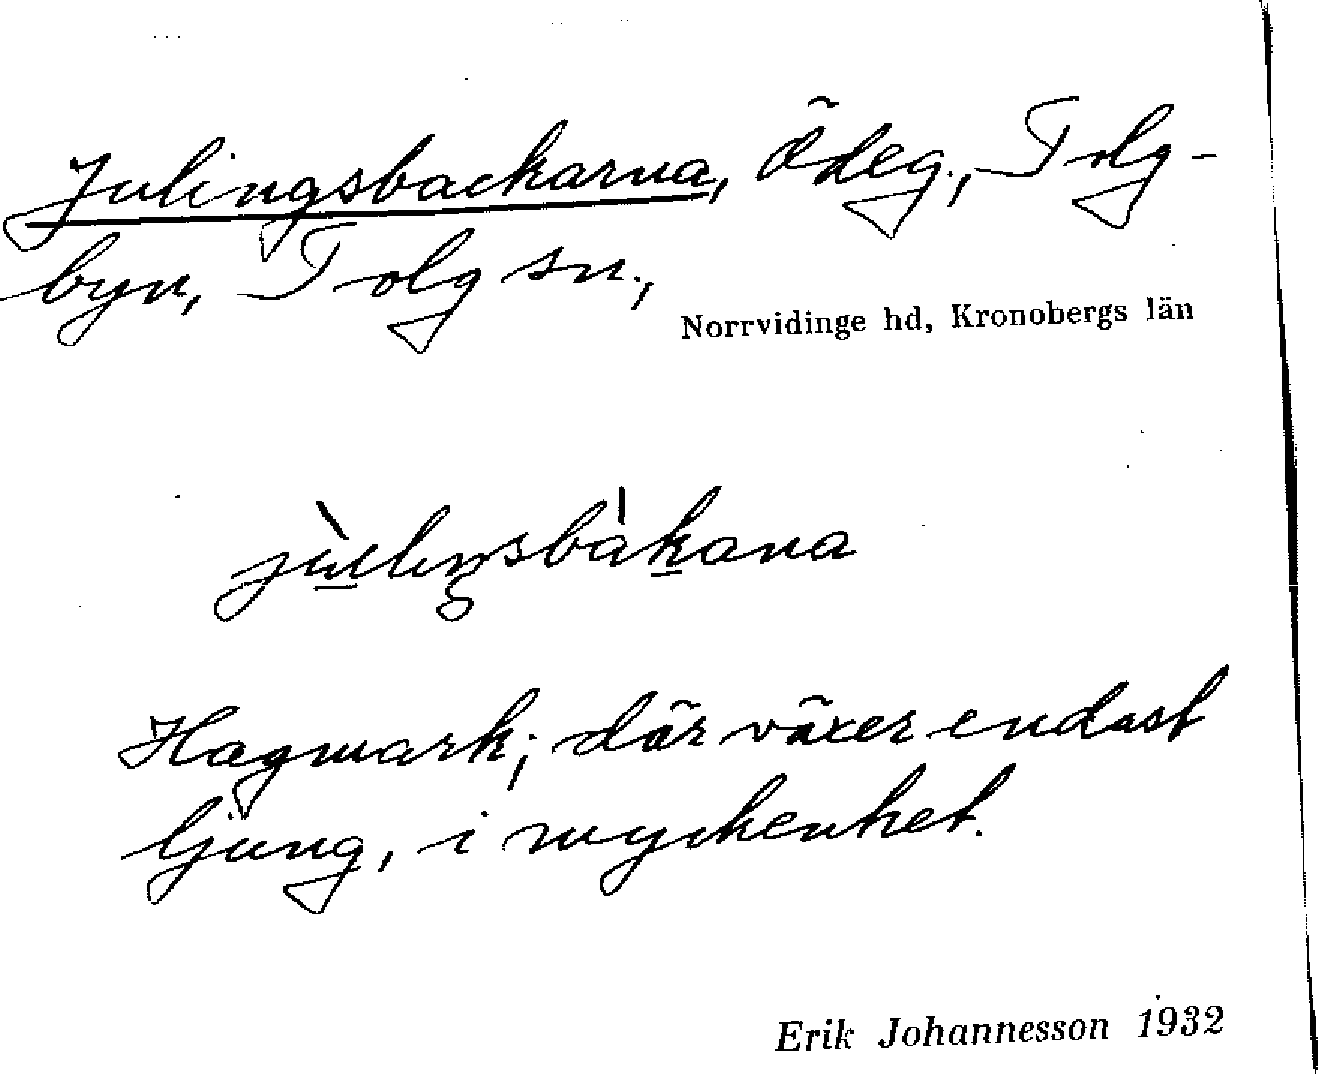 Julingsbackarna, Ödeg., Tolg-
byn, Tolg sn.,
Norrvidinge hd, Kronobergs län
jùliŋsbákana
Hagmark; där växer endast
ljung, i myckenhet.
Erik Johannesson 1932